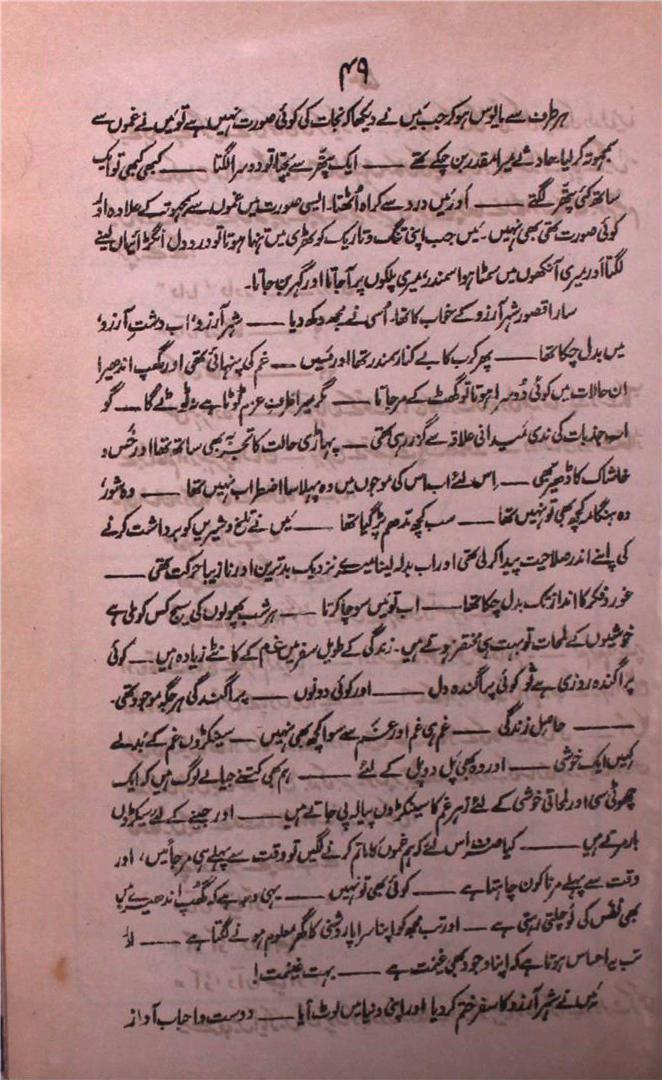 ۴۹
ہر طرف سے مایوس ہو کر جب مَیں نے دیکھا کہ نجات کی کوئی صورت نہیں ہے تو مَیں نے غموں سے
سمجھوتہ کر لیا۔ حادثے میرا مقدر بن چکے تھے —— ایک پتھّر سے بچتا تو دوسرا لگتا —— کبھی کبھی تو ایک
ساتھ کئی پتھّر لگتے —— اور مَیں درد سے کراہ اُٹھتا۔ ایسی صورت میں غموں سے سمجھوتے کے علاوہ اور
کوئی صورت تھی بھی نہیں۔ مَیں جب اپنی تنگ و تاریک کوٹھری میں تنہا ہوتا تو دردِ دل انگڑائیاں لینے
لگتا اور میری آنکھوں میں سمٹا ہوا سمندر، میری پلکوں پر آ جاتا اور گہر بن جاتا۔
سارا قصور شہرِ آرزو کے خواب کا تھا۔ اُسی نے مجھے دکھ دیا —— شہرِ آرزو، اب دشتِ آرزو،
میں بدل چکا تھا —— پھر کرب کا بے کنار سمندر تھا اور مَیں —— غم کی پنہائی تھی اور گھپ اندھیرا
ان حالات میں کوئی دُوسرا ہوتا تو گھٹ کے مر جاتا —— مگر میرا ظرفِ عزم ٹوٹا ہے نہ ٹوٹے گا —— گو
اب جذبات کی ندی میدانی علاقہ سے گذر رہی تھی —— پہاڑی حالت کا تجربہ بھی ساتھ تھا اور خس و
خاشاک کا ڈھیر بھی —— اِس لئے اب اس کی موجوں میں وہ پہلا سا اضطراب نہیں تھا —— وہ شور،
وہ ہنگامہ کچھ بھی تو نہیں تھا —— سب کچھ مدھم پڑ گیا تھا —— مَیں نے تلخ و شیریں کو برداشت کرنے
کی اپنے اندر صلاحیت پیدا کر لی تھی اور اب بدلہ لینا میرے نزدیک بدترین اور نازیبا حرکت تھی ——
غور و فکر کا انداز تک بدل چکا تھا —— اب تو مَیں سوچا کرتا —— ہر شب پھولوں کی سیج کس کو ملی ہے
خوشیوں کے لمحات تو بہت ہی مختصر ہوتے ہیں۔ زندگی کے طویل سفر میں غم کے کانٹے زیادہ ہیں —— کوئی
پراگندہ روزی ہے تو کوئی پراگندہ دل —— اور کوئی دونوں —— پراگندگی ہر جگہ موجود تھی۔
—— حاصلِ زندگی —— غم ہی غم اور غم سے سوا کچھ بھی نہیں —— سینکڑوں غم کے بدلے
کہیں ایک خوشی —— اور وہ بھی پَل دو پل کے لئے —— ہم بھی کتنے جیالے لوگ ہیں کہ ایک
چھوٹی سی اور لمحاتی خوشی کے لئے زہرِ غم کا سینکڑوں پیالہ پی جاتے ہیں —— اور جینے کے لئے سیکڑوں
بار مرتے ہیں —— کیا صرف اس لئے کہ ہم غموں کا ماتم کرنے لگیں تو وقت سے پہلے ہی مر جائیں، اور
وقت سے پہلے مرنا کون چاہتا ہے —— کوئی بھی تو نہیں —— یہی وجہ ہے کہ گھُپ اندھیرے میں
بھی نفس کی لَو جلتی رہتی ہے —— اور تب مجھ کو اپنا سراپا روشنی کا گھر معلوم ہونے لگتا ہے ——
تب یہ احساس ہوتا ہے کہ اپنا وجود بھی غنیمت ہے —— بہت غنیمت!
مَیں نے شہرِ آرزو کا سفر ختم کر دیا اور اپنی دنیا میں لوٹ آیا —— دوست و احباب آواز